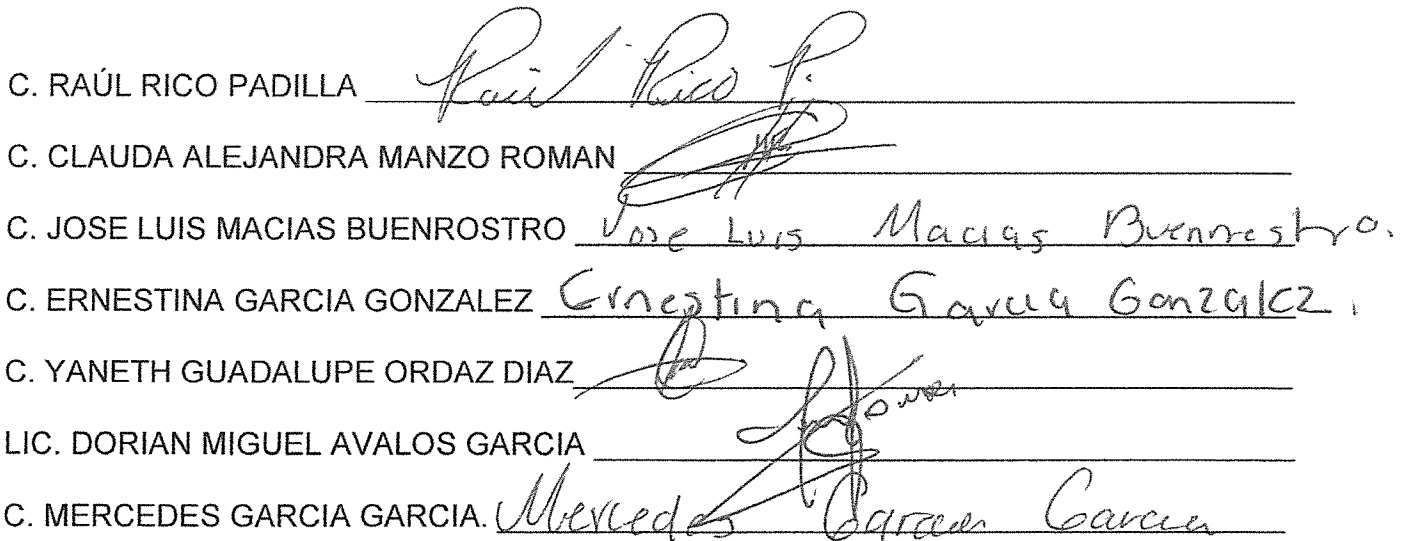 C. RAÚL RICO PADILLA Raúl Rico P.
C. CLAUDA ALEJANDRA MANZO ROMAN
C. JOSE LUIS MACIAS BUENROSTRO Jose Luis Macias Buenrrostro.
C. ERNESTINA GARCIA GONZALEZ Ernestina Garcia Gonzalez.
C. YANETH GUADALUPE ORDAZ DIAZ
LIC. DORIAN MIGUEL AVALOS GARCIA
C. MERCEDES GARCIA GARCIA. Mercedes Garcia Garcia